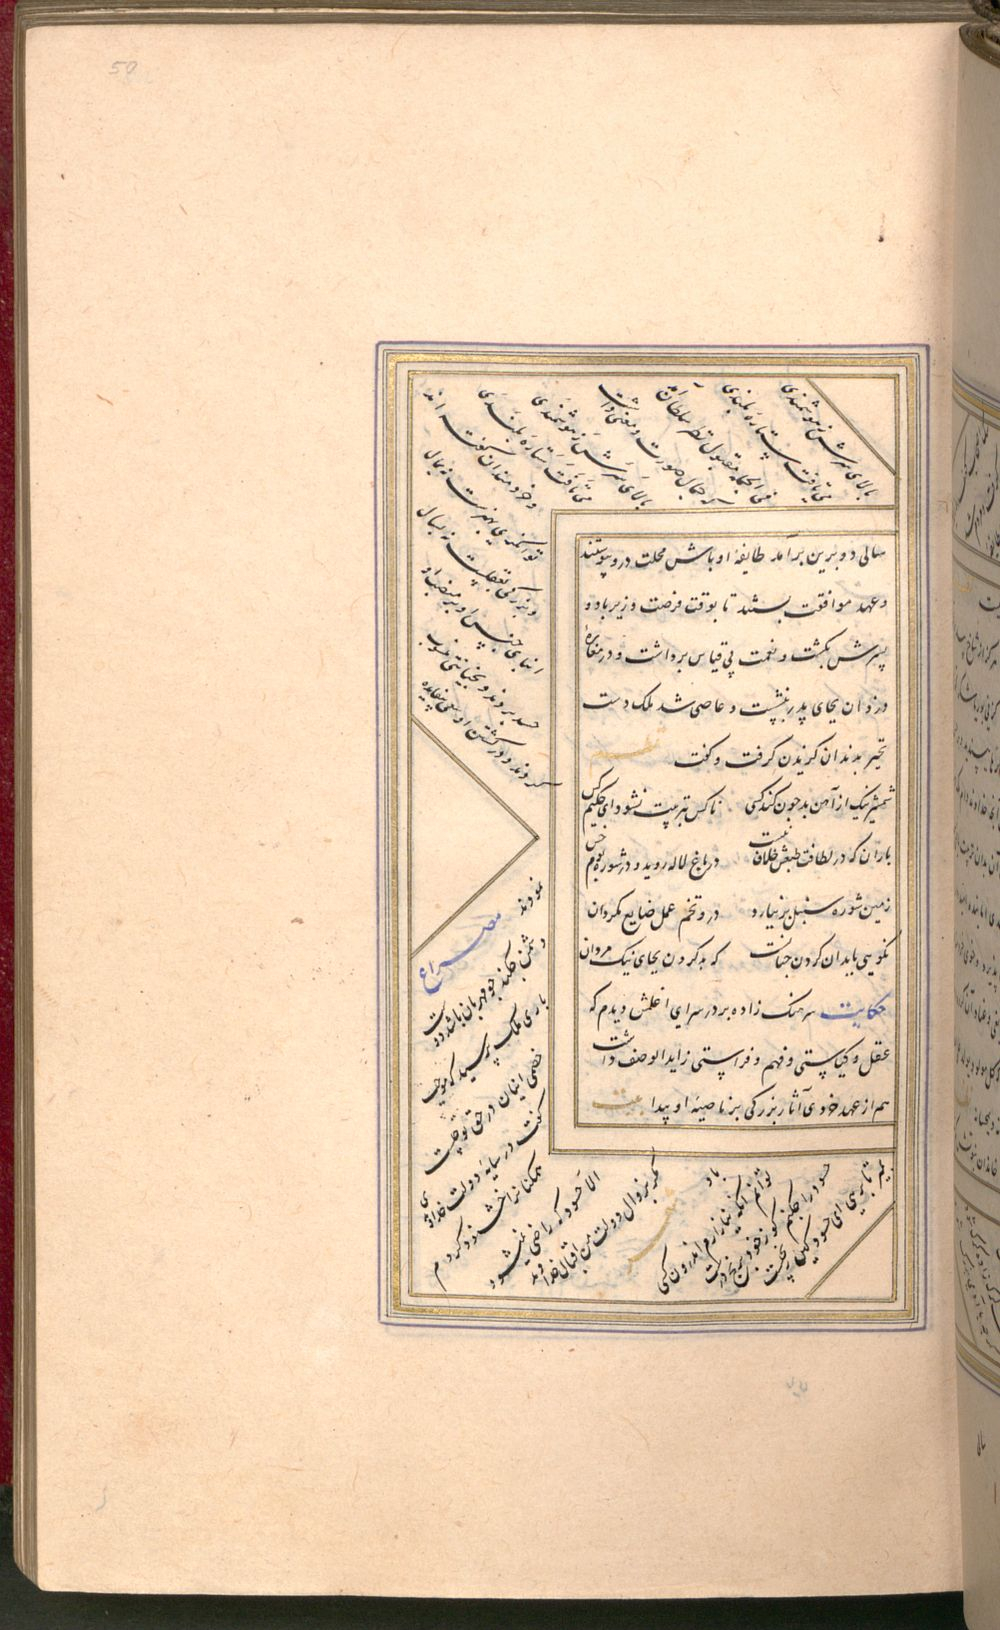 سالی دو برین برآمد طایفهٔ اوباش محلت درو پیوستند
و عهد موافقت بستند تا بوقت فرصت وزیر با دو
پسرش بکشت و نعمت بی قیاس برداشت و در مغارهٔ
دزدان بجای پدر بنشست و عاصی شد ملک دست
تحیر بدندان گزیدن گرفت و گفت
شمشیر نیک از آهن بد چون کند کسی ناکس بتربیت نشود ای حکیم کس
باران که در لطافت طبعش خلاف نیست در باغ لاله روید و در شوره بوم خس
زمین شوره سنبل بر نیارد درو تخم عمل ضایع مگردان
نکویی با بدان کردن چنانست که بد کردن بجای نیک مردان
حکایت سرهنگ زاده بر در سرای اغلمش دیدم که
عقل و کیاستی و فهم و فراستی زاید الوصف داشت
هم از عهد خردی آثار بزرگی بر ناصیهٔ او پیدا بیت
بالای سرش ز هوشمندی
می تافت ستاره بلندی
فی الجمله مقبول نظر سلطان آمد
که جمال صورت و معنی داشت
بالای سرش ز هوشمندی
می تافت ستاره بلندی
و خردمندان گفته اند
توانگری بهنرست نه بمال
و بزرگی بعقلست نه بسال
ابنای جنس او بر منصب او
حسد بردند و بخیانتی منسوب
کردند و در کشتن او سعی بیفایده
نمودند مصراع
دشمن چکند چو مهربان باشد دوست
باری ملک پرسید که موجب
خصمی اینان در حق تو چیست
گفت در سایه دولت خداوندی
همگنانرا خشنود کردم
الا حسود که راضی نمیشود
مگر بزوال دولت من اقبال خداوند
باد
توانم آنکه نیازارم اندرون کسی
حسود را چکنم کو ز خود برنج درست
بمیر تا برهی ای حسود کین رنجیست
50